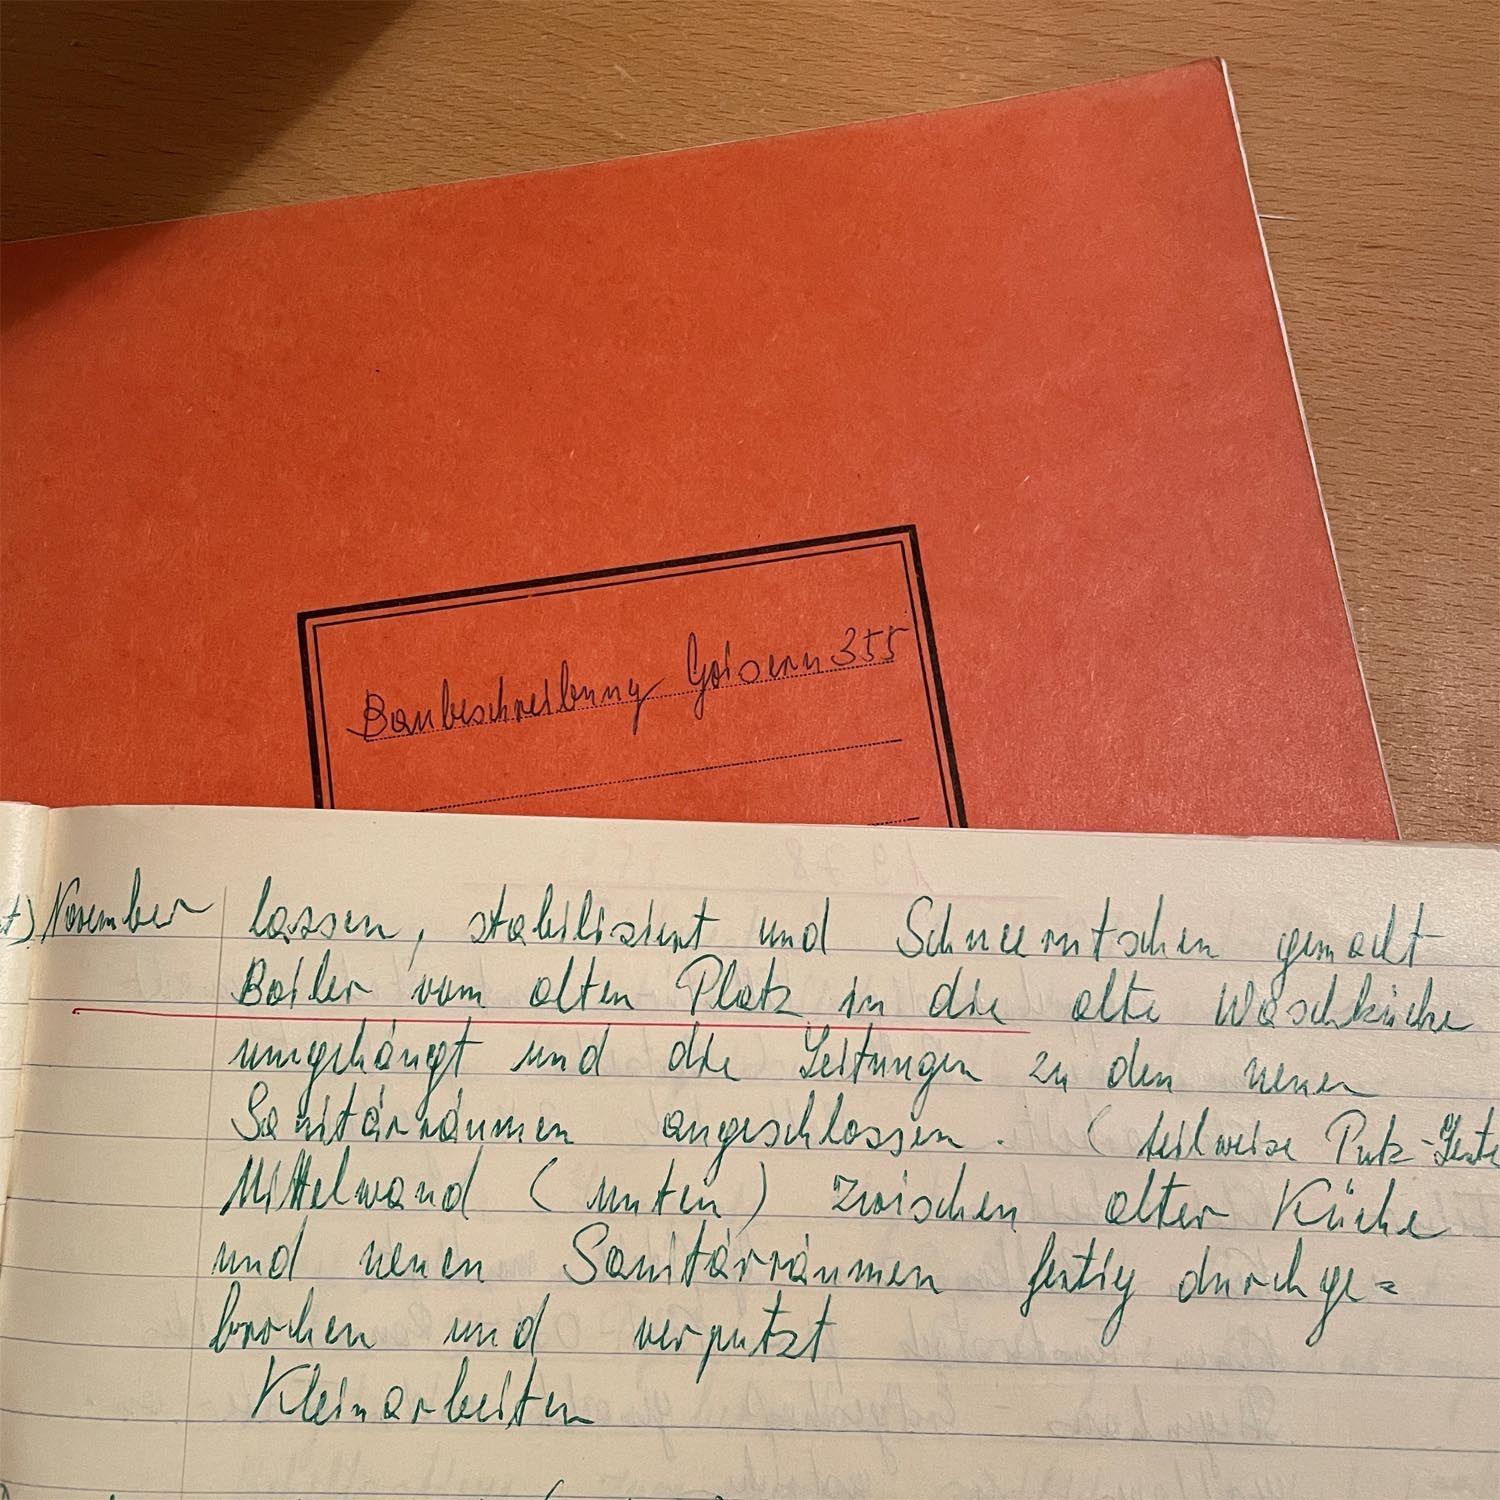 Baubeschreibung Goisern 355
November lassen, stabilisiert und Schneerutschen gemacht
Boiler vom alten Platz in die alte Waschküche
umgehängt und die Leitungen zu den neuen
Sanitärräumen angeschlossen. (teilweise Putz-
Mittelwand (unten) zwischen alter Küche
und neuen Sanitärräumen fertig durchge=
brochen und verputzt
Kleinarbeiten